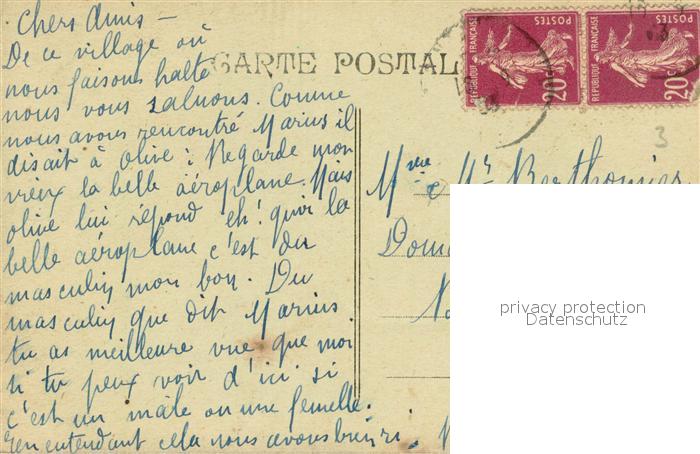 Chers Amis –
De ce village où
nous faisons halte
nous vous saluons. Comme
nous avons rencontré Marius il
disait à Olive : Regarde mon
vieux la belle aéroplane. Mais
Olive lui répond eh! quoi la
belle aéroplane c'est du
masculin mon bon. Du
masculin que dit Marius
tu as meilleure vue que moi
si tu peux voir d'ici si
c'est un mâle ou une femelle.
en entendant cela nous avons bien ri.
CARTE POSTAL
REPUBLIQUE FRANÇAISE
POSTES
20c
REPUBLIQUE FRANÇAISE
POSTES
20c
3
Mme & Mr Berthomier
privacy protection
Datenschutz